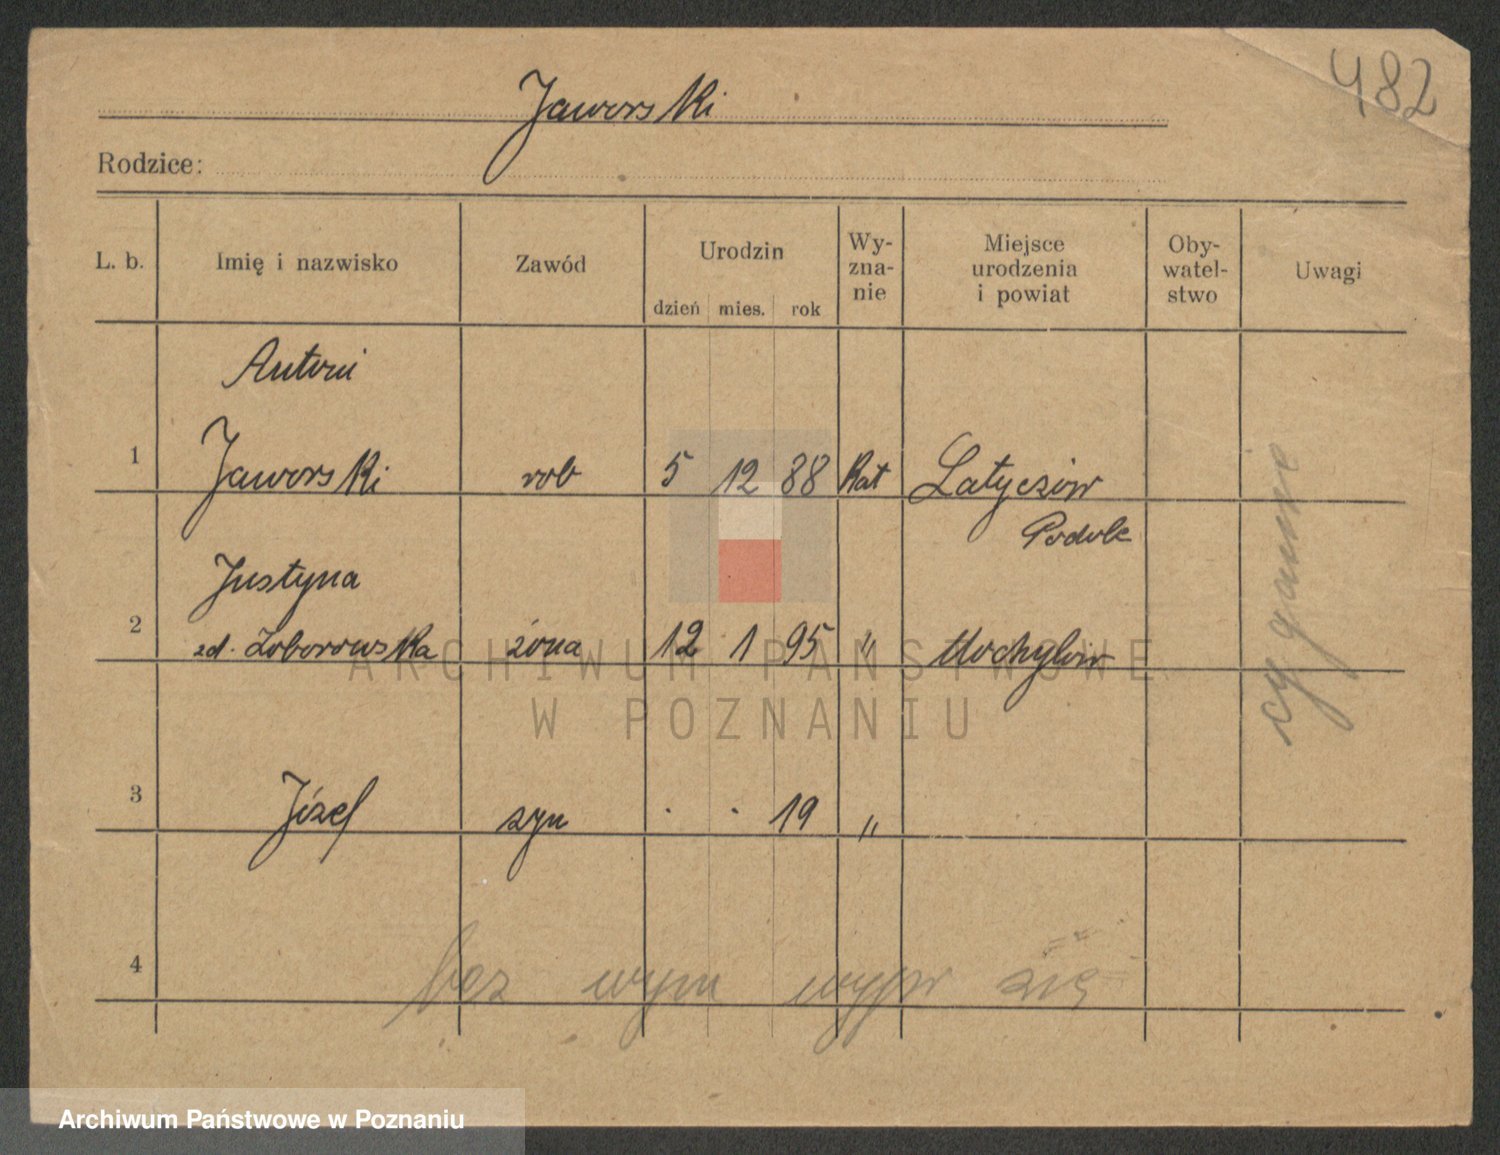 482
Jaworski
Rodzice:
L. b. Imię i nazwisko Zawód Urodzin dzień mies. rok Wy-zna-nie Miejsce urodzenia i powiat Oby-watel-stwo Uwagi
Antoni
1 Jaworski rob 5 12 88 Kat Latyczów
Podole
Justyna
2 zd. Zoborowska żona 12 1 95 " Mochylow
3 Józef syn . . 19 "
cyganie
4 bez wym wypr się
ARCHIWUM PAŃSTWOWE
W POZNANIU
Archiwum Państwowe w Poznaniu